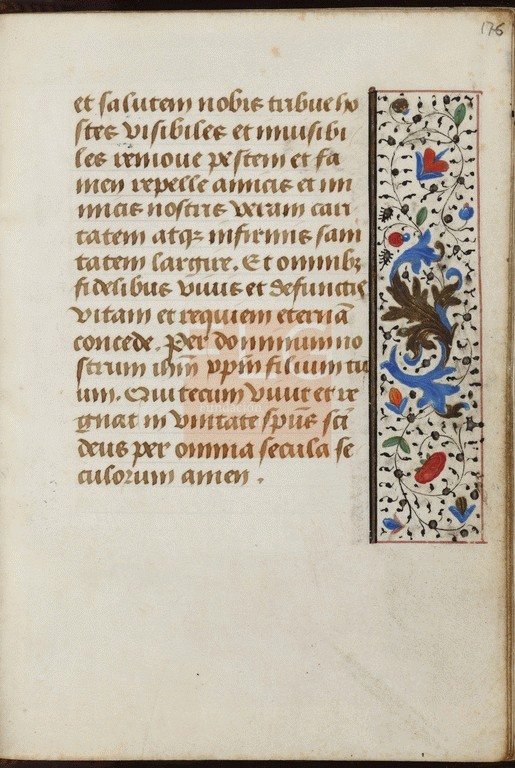 176
et salutem nobis tribue ho
stes visibiles et inuisibi
les remoue pestem et fa
mem repelle amicis et in
imicis nostris veram cari
tatem atqꝫ infirmis sani
tatem largire. Et omnibꝫ
fidelibus viuis et defunctis
vitam et requiem eternā
concede. Per dominum no
strum ihm̄ xp̄m filium tu
um. Qui tecum viuit et re
gnat in vnitate sp̄us sc̄i
deus per omnia secula se
culorum amen.
FLG
Fundación